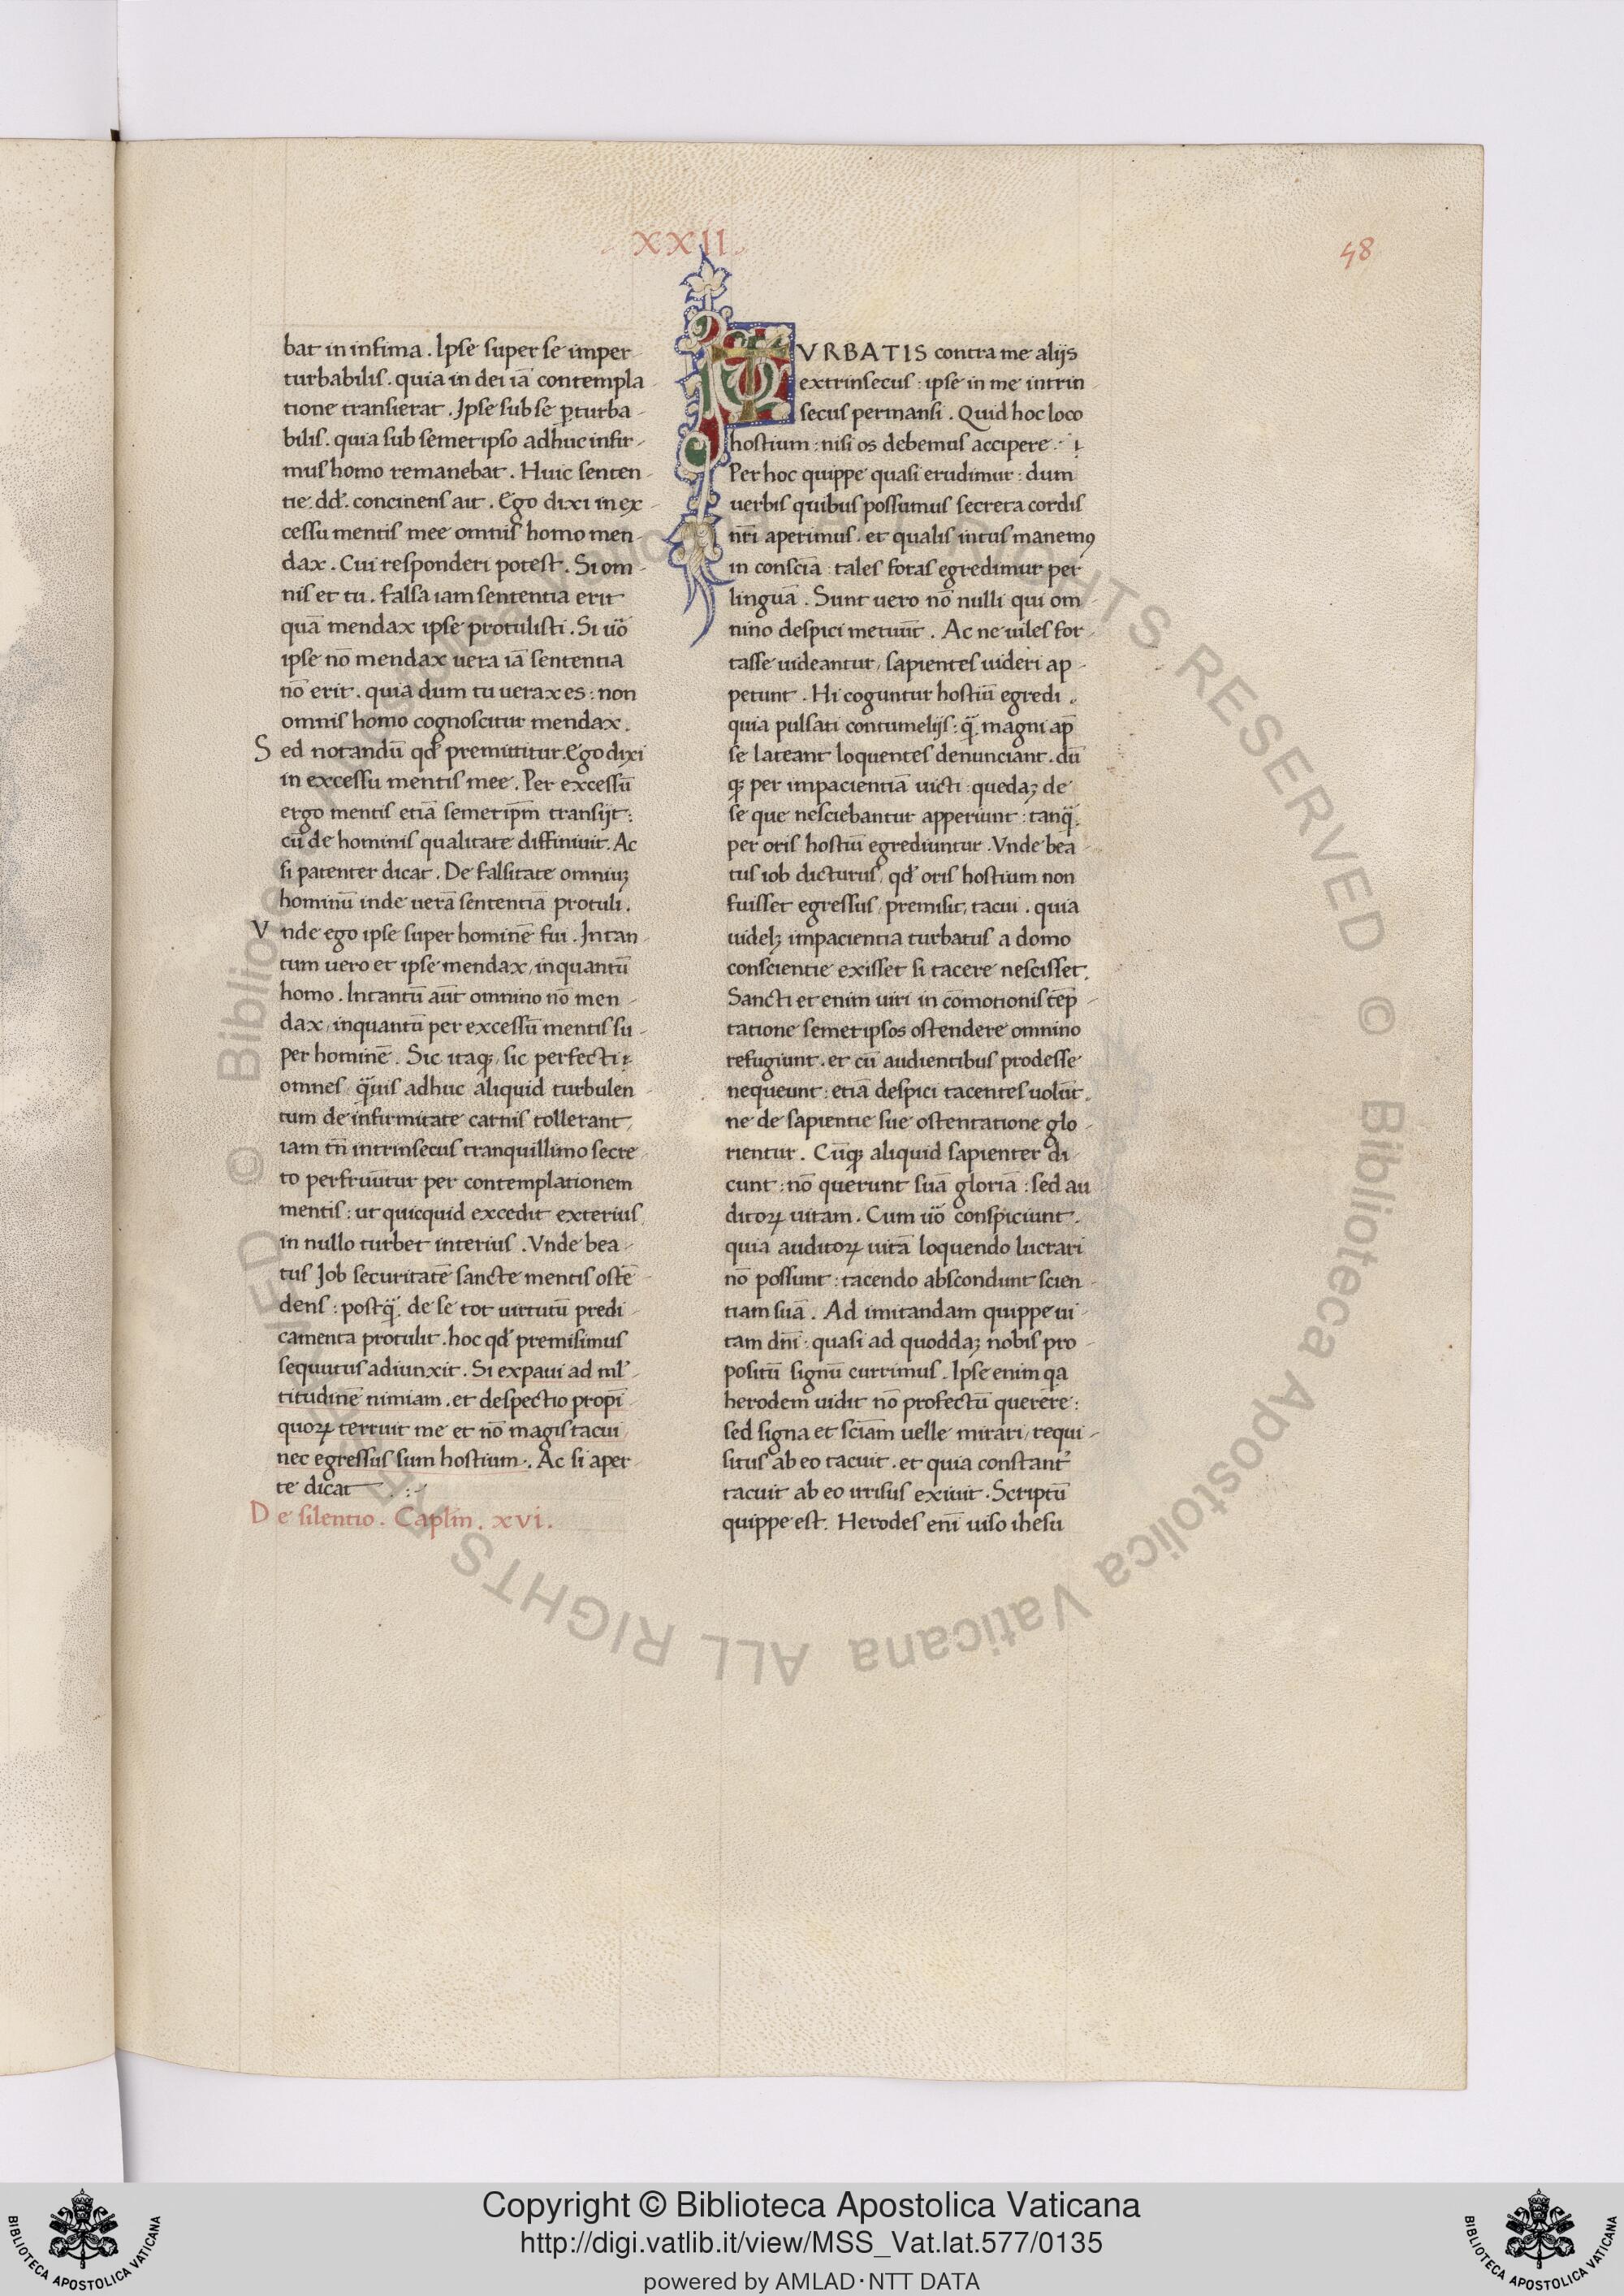 XXII
48
bat in infima. Ipse super se imper
turbabilis. quia in dei iā contempla
tione transierat. Ipse sub se p̱turba-
bilis. quia sub semetipso adhuc infir-
mus homo remanebat. Huic senten-
tie. dd̄. concinens ait. Ego dixi in ex
cessu mentis mee omnis homo men-
dax. Cui responderi potest. Si om-
nis et tu. falsa iam sententia erit
quā mendax ipse protulisti. Si uō
ipse nō mendax uera iā sententia
nō erit. quia dum tu uerax es: non
omnis homo cognoscitur mendax.
Sed notandū qd̄ premittitur. Ego dixi
in excessu mentis mee. Per excessū
ergo mentis etiā semetip̄m transijt:
cū de hominis qualitate diffiniuit. Ac
si patenter dicat. De falsitate omniuꝫ
hominū inde uerā sententiā protuli.
Vnde ego ipse super hominē fui. Intan-
tum uero et ipse mendax, inquantū
homo. Intantū aūt omnino nō men-
dax, inquantū per excessū mentis su-
per hominē. Sic itaqꝫ, sic perfecti
omnes, q̄uis adhuc aliquid turbulen
tum de infirmitate carnis tollerant,
iam tn̄ intrinsecus tranquillimo secre-
to perfruūtur per contemplationem
mentis: ut quicquid excedit exterius,
in nullo turbet interius. Vnde bea-
tus Job securitatē sancte mentis ostē
dens: postq̄. de se tot uirtutū predi-
camenta protulit. hoc qd̄ premisimus
sequutus adiunxit. Si expaui ad ml̄-
titudinē nimiam. et despectio propī
quoꝝ terruit me et nō magis tacui
nec egressus sum hostium. Ac si aper-
te dicat
De silentio. Caplm̄. xvi.
TVRBATIS contra me alijs
extrinsecus: ipse in me intrin
secus permansi. Quid hoc loco
hostium: nisi os debemus accipere.
Per hoc quippe quasi erudimur: dum
uerbis quibus possumus secreta cordis
nr̄i aperimus. et qualis intus manemꝰ
in consciā: tales foras egredimur per
linguā. Sunt uero nō nulli qui om
nino despici metuūt. Ac ne uiles for-
tasse uideantur, sapientes uideri ap-
petunt. Hi coguntur hostiū egredi.
quia pulsati contumelijs: q̄. magni ap̄
se lateant loquentes denunciant. dū
qꝫ per impacientiā uicti: quedaꝫ de
se que nesciebantur apperiunt: tanq̄.
per oris hostiū egrediuntur. Vnde bea
tus iob dicturus, qd̄ oris hostium non
fuisset egressus, premisit, tacui. quia
uidelꝫ impacientia turbatus a domo
conscientie exisset si tacere nescisset.
Sancti et enim uiri in cōmotionis tēp-
tatione semetipsos ostendere omnino
refugiunt. et cū audientibus prodesse
nequeunt: etiā despici tacentes uolūt.
ne de sapientie sue ostentatione glo-
rientur. Cūqꝫ aliquid sapienter di-
cunt: nō querunt suā gloriā: sed au
ditoꝝ uitam. Cum uō conspiciunt.
quia auditoꝝ uitā loquendo lucrari
nō possunt: tacendo abscondunt scien-
tiam suā. Ad imitandam quippe ui-
tam dn̄i: quasi ad quoddaꝫ nobis pro-
positū signū currimus. Ipse enim qa
herodem uidit nō profectū querere:
sed signa et sciām uelle mirari, requi-
situs ab eo tacuit. et quia constant̉
tacuit ab eo irrisus exiuit. Scriptū
quippe est. Herodes enī uiso ihesu
© Biblioteca Apostolica Vaticana ALL RIGHTS RESERVED © Biblioteca Apostolica Vaticana ALL RIGHTS RESERVED
Copyright © Biblioteca Apostolica Vaticana
http://digi.vatlib.it/view/MSS_Vat.lat.577/0135
powered by AMLAD·NTT DATA
BIBLIOTECA APOSTOLICA VATICANA
BIBLIOTECA APOSTOLICA VATICANA